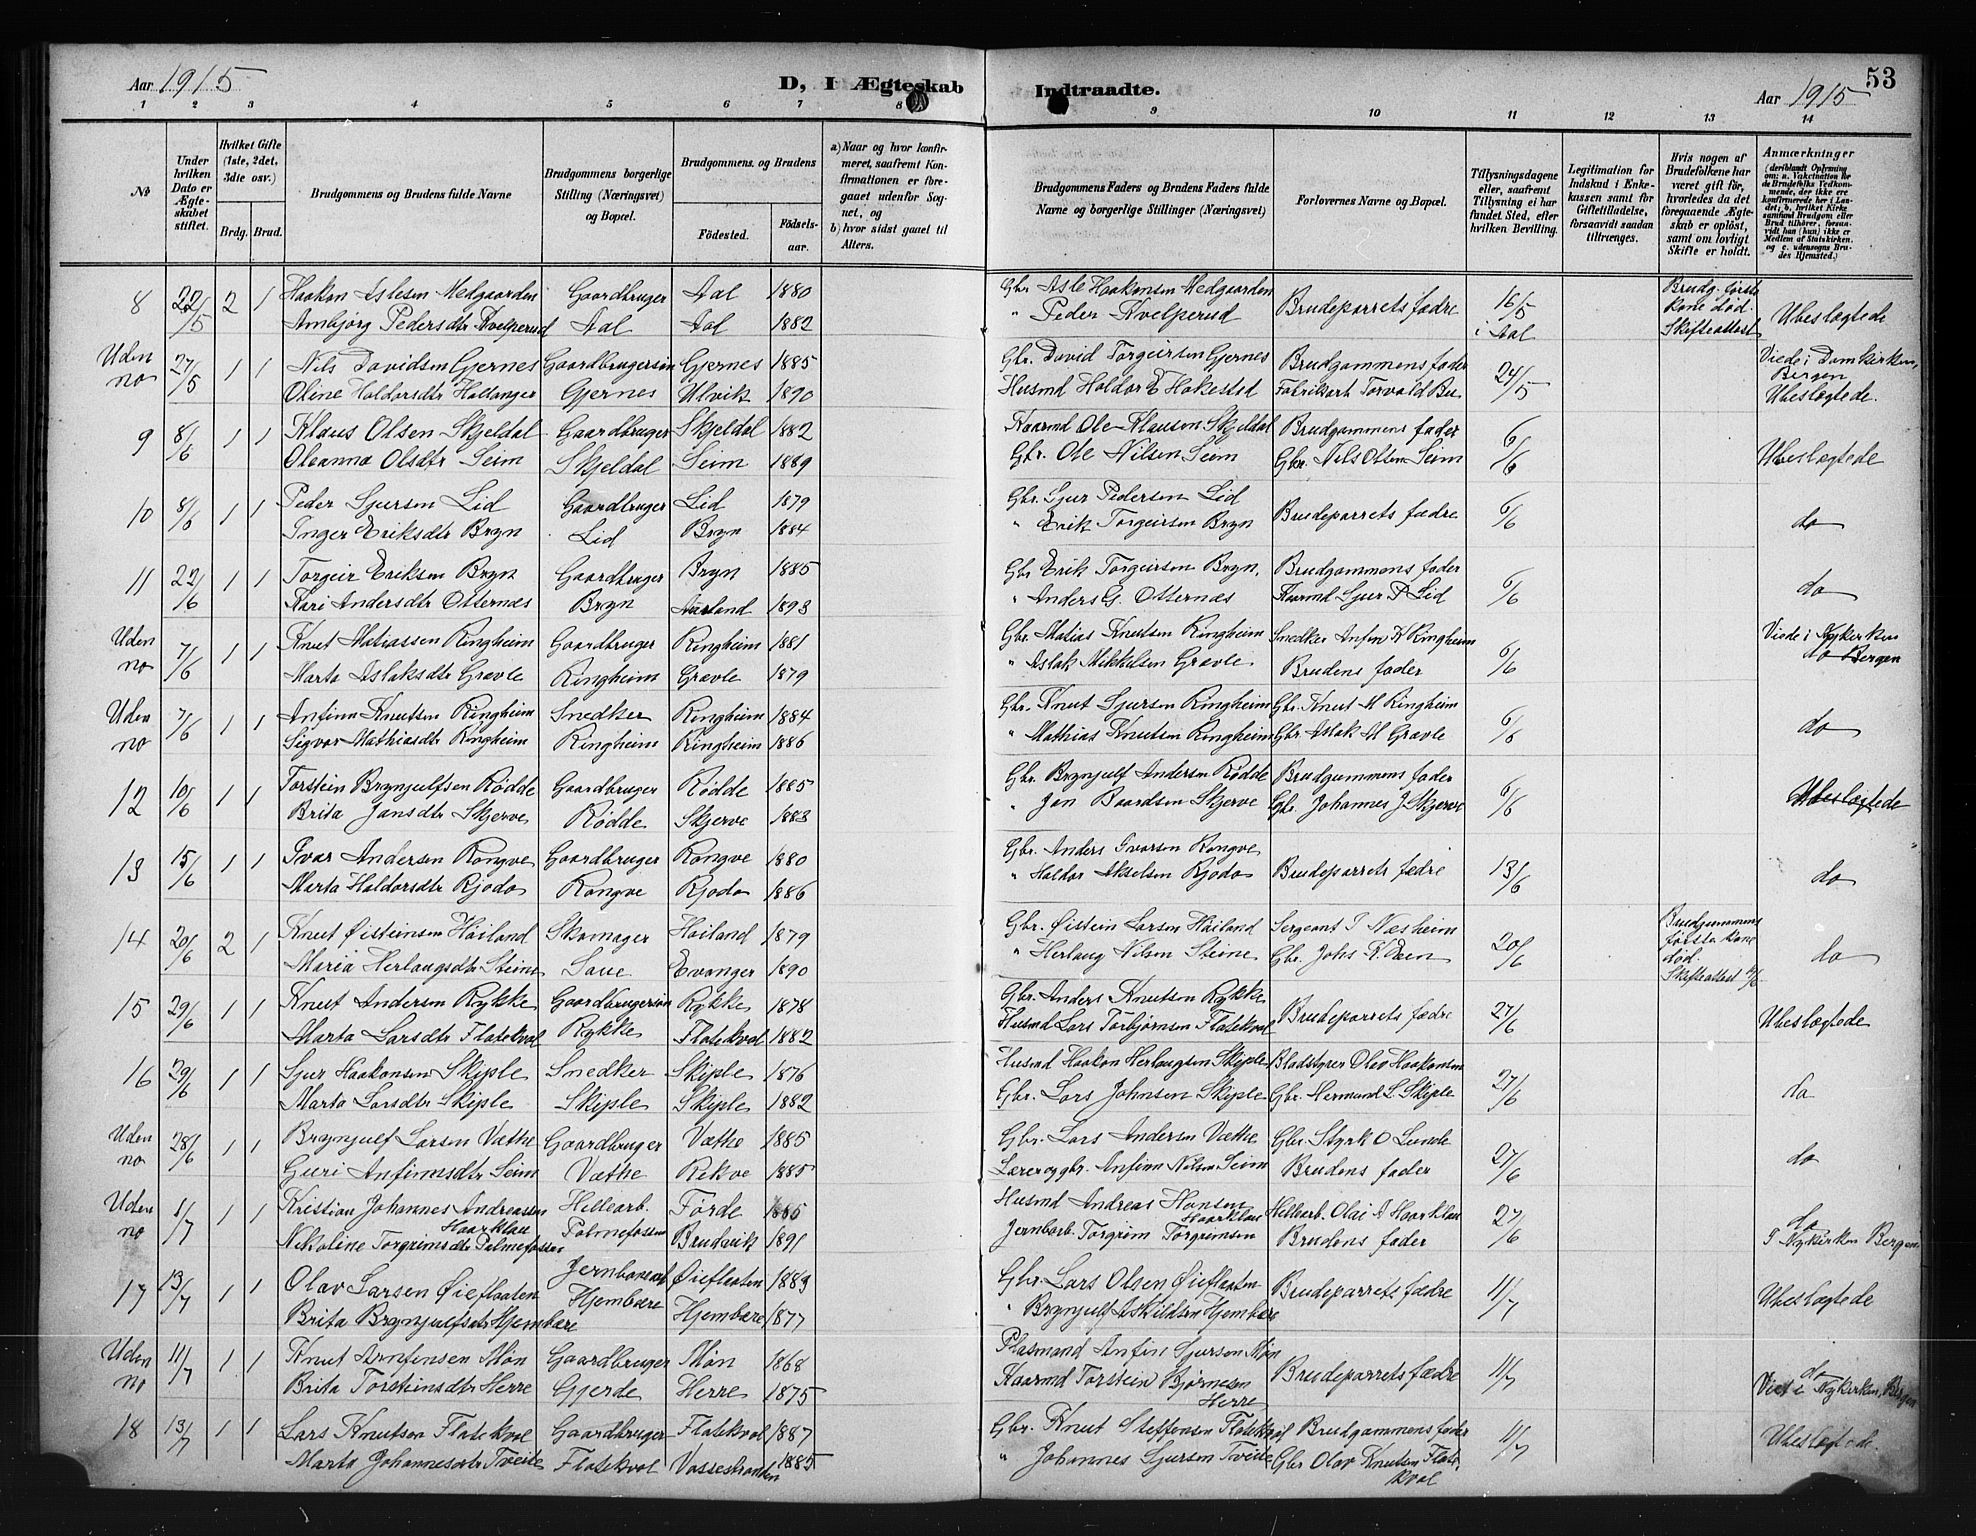 Aar 1915
D, I Ægteskab
Indtraadte.
Aar 1915
53
1 2 3 4 5 6 7 8 9 10 11 12 13 14
No
Under hvilken Dato er Ægteskabet stiftet.
Hvilket Gifte (1ste, 2det, 3die osv.)
Brdg. Brud.
Brudgommens og Brudens fulde Navne
Brudgommens borgerlige Stilling (Næringsvei) og Bopæl.
Brudgommens og Brudens
Fødested.
Fødselsaar.
a) Naar og hvor konfirmeret, saafremt Konfirmationen er foregaaet udenfor Sognet, og
b) hvor sidst gaaet til Alters.
Brudgommens Faders og Brudens Faders fulde Navne og borgerlige Stillinger (Næringsvei)
Forlovernes Navne og Bopæl.
Tillysningsdagene eller, saafremt Tillysning ei har fundet Sted, efter hvilken Bevilling.
Legitimation for Indskud i Enkekassen samt for Giftetilladelse, forsaavidt saadan tiltrænges.
Hvis nogen af Brudefolkene har været gift før, hvorledes da det foregaaende Ægteskab er opløst, samt om lovligt Skifte er holdt.
Anmærkninger
(deriblandt Oplysning om: a. Vakcination for de Brudefolks Vedkommende, der ikke ere konfirmerede her i Landet; b. hvilket Kirkesamfund Brudgom eller Brud tilhører, forsaavidt han (hun) ikke er Medlem af Statskirken, og c. udensogns Brudes Hjemsted.)
8 22/5 2 1 Haakon Aslesen Medgaarden Gaardbruger Aal 1880 Gbr. Asle Haakonsen Medgaarden Brudeparrets fædre 16/5 i Aal Brudg. første kone død. Skifteattest Ubeslægtede
Ambjørg Pedersdtr Kvelperud Aal Aal 1882 " Peder Kvelperud
Uden no 27/5 1 1 Nils Davidsen Gjernes Gaardbrugersøn Gjernes 1885 Gbr. David Torgeirsen Gjernes Brudgommens fader 24/5 Viede i Domkirken, Bergen
Oline Haldorsdtr Hallanger Gjernes Ulvik 1890 Husmd Haldor E Hakestad Fabrikarb Torvald Bu Ubeslægtede.
9 8/6 1 1 Klaus Olsen Skjeldal Gaardbruger Skjeldal 1882 Kaarmd Ole Klausen Skjeldal Brudgommens fader 6/6 Ubeslægtede
Oleanna Olsdtr Seim Skjeldal Seim 1889 Gbr. Ole Nilsen Seim Gbr. Nils Olsen Seim
10 8/6 1 1 Peder Sjursen Lid Gaardbruger Lid 1879 Gbr. Sjur Pedersen Lid Brudeparrets fædre 6/6 do
Inger Eriksdtr Bryn Lid Bryn 1884 " Erik Torgeirsen Bryn
11 22/6 1 1 Torgeir Eriksen Bryn Gaardbruger Bryn 1885 Gbr Erik Torgeirsen Bryn, Brudgommens fader 6/6 do
Kari Andersdtr Otternæs Bryn Aurland 1893 " Anders G. Otternæs Kaarmd Sjur P Lid
Uden no 7/6 1 1 Knut Matiassen Ringheim Gaardbruger Ringheim 1881 Gbr. Matias Knutsen Ringheim Snedker Anfin K Ringheim 6/6 Viede i Nykirken
Marta Aslaksdtr Grøvle Ringheim Grøvle 1879 " Aslak Mikkelsen Grøvle Brudens fader do Bergen
Uden no 7/6 1 1 Anfinn Knutsen Ringheim Snedker Ringheim 1884 Gbr. Knut Sjursen Ringheim Gbr. Knut M Ringheim 6/6 do
Sigvor Mathiasdtr Ringheim Ringheim Ringheim 1886 " Mathias Knutsen Ringheim Gbr Aslak M Grøvle
12 10/6 1 1 Torstein Brynjulfsen Rødde Gaardbruger Rødde 1885 Gbr. Brynjulf Andersen Rødde Brudgummens fader 6/6 Ubeslægtede
Brita Jonsdtr Skjerve Rødde Skjerve 1883 " Jon Baardsen Skjerve Gbr. Johannes J. Skjerve
13 15/6 1 1 Ivar Andersen Rongve Gaardbruger Rongve 1880 Gbr. Anders Ivarsen Rongve Brudeparrets fædre 13/6 do
Marta Haldorsdtr Rjodo Rongve Rjodo 1886 " Haldor Akselsen Rjodo
14 20/6 2 1 Knut Øisteinsen Høiland Skomager Høiland 1879 Gbr. Øistein Larsen Høiland Sergeant I Næsheim 20/6 Brudgummens første kone død. Skifteattest do
Maria Herlaugsdtr Steine Saue Evanger 1890 " Herlaug Nilsen Steine Gbr. Johs K.
15 29/6 1 1 Knut Andersen Rykke Gaardbrugersøn Rykke 1878 Gbr. Anders Knutsen Rykke Brudeparrets fædre 27/6 Ubeslægtede
Marta Larsdtr Flatekval Rykke Flatekval 1882 Husmd Lars Torbjørnsen Flatekval
16 29/6 1 1 Sjur Haakonsen Skiple Snedker Skiple 1876 Husmd Haakon Herlaugsen Skiple Bladstyrer Olav Haakonsen 27/6 da
Marta Larsdtr Skiple Skiple Skiple 1882 Gbr. Lars Johnsen Skiple Gbr. Hermund L. Skiple
Uden no 28/6 1 1 Brynjulf Larsen Væthe Gaardbruger Væthe 1885 Gbr. Lars Andersen Væthe Gbr. Styrk O Lunde 27/6 do
Guri Anfinnsdtr Seim Væthe Rekve 1885 Lærer og gbr. Anfinn Nilsen Seim Brudens fader
Uden no 1/7 1 1 Kristian Johannes Andreassen Haarklau Hellearb. Førde 1885 Husmd Andreas Hansen Haarklau Hellearb. Olai A Haarklau 27/6 do
Nikoline Torgrimsdtr Palmefossen Palmefossen Bruvik 1891 Jernbarb. Torgrim Torgrimsen Brudens fader I Nykirken Bergen
17 13/7 1 1 Olav Larsen Øieflaaten Øieflaaten 1883 Gbr. Lars Olsen Øieflaaten Brudeparrets fædre 11/7 Ubeslægtede
Brita Brynjulfsdtr Hjembære Hjembære Hjembære 1877 " Brynjulf Askildsen Hjembære
Uden no 11/7 1 1 Knut Arnfinsen Møn Gaardbruger Møn 1868 Plasmand Anfin Sjurson Møn Brudeparrets fædre 11/7 do
Brita Torsteinsdtr Herre Gjerde Herre 1875 Kaarmd Torstein Bjørnesen Herre Viet i Nykirken, Bergen
18 13/7 1 1 Lars Knutsen Flatekval Gaardbruger Flatekval 1887 Gbr. Knut Steffensen Flatekval Brudgommens fader 11/7 Ubeslægtede.
Marta Johannesdtr Tveite Flatekval Vossestranden 1885 " Johannes Sjurson Tveite Gbr Olav Knutsen Flatekval